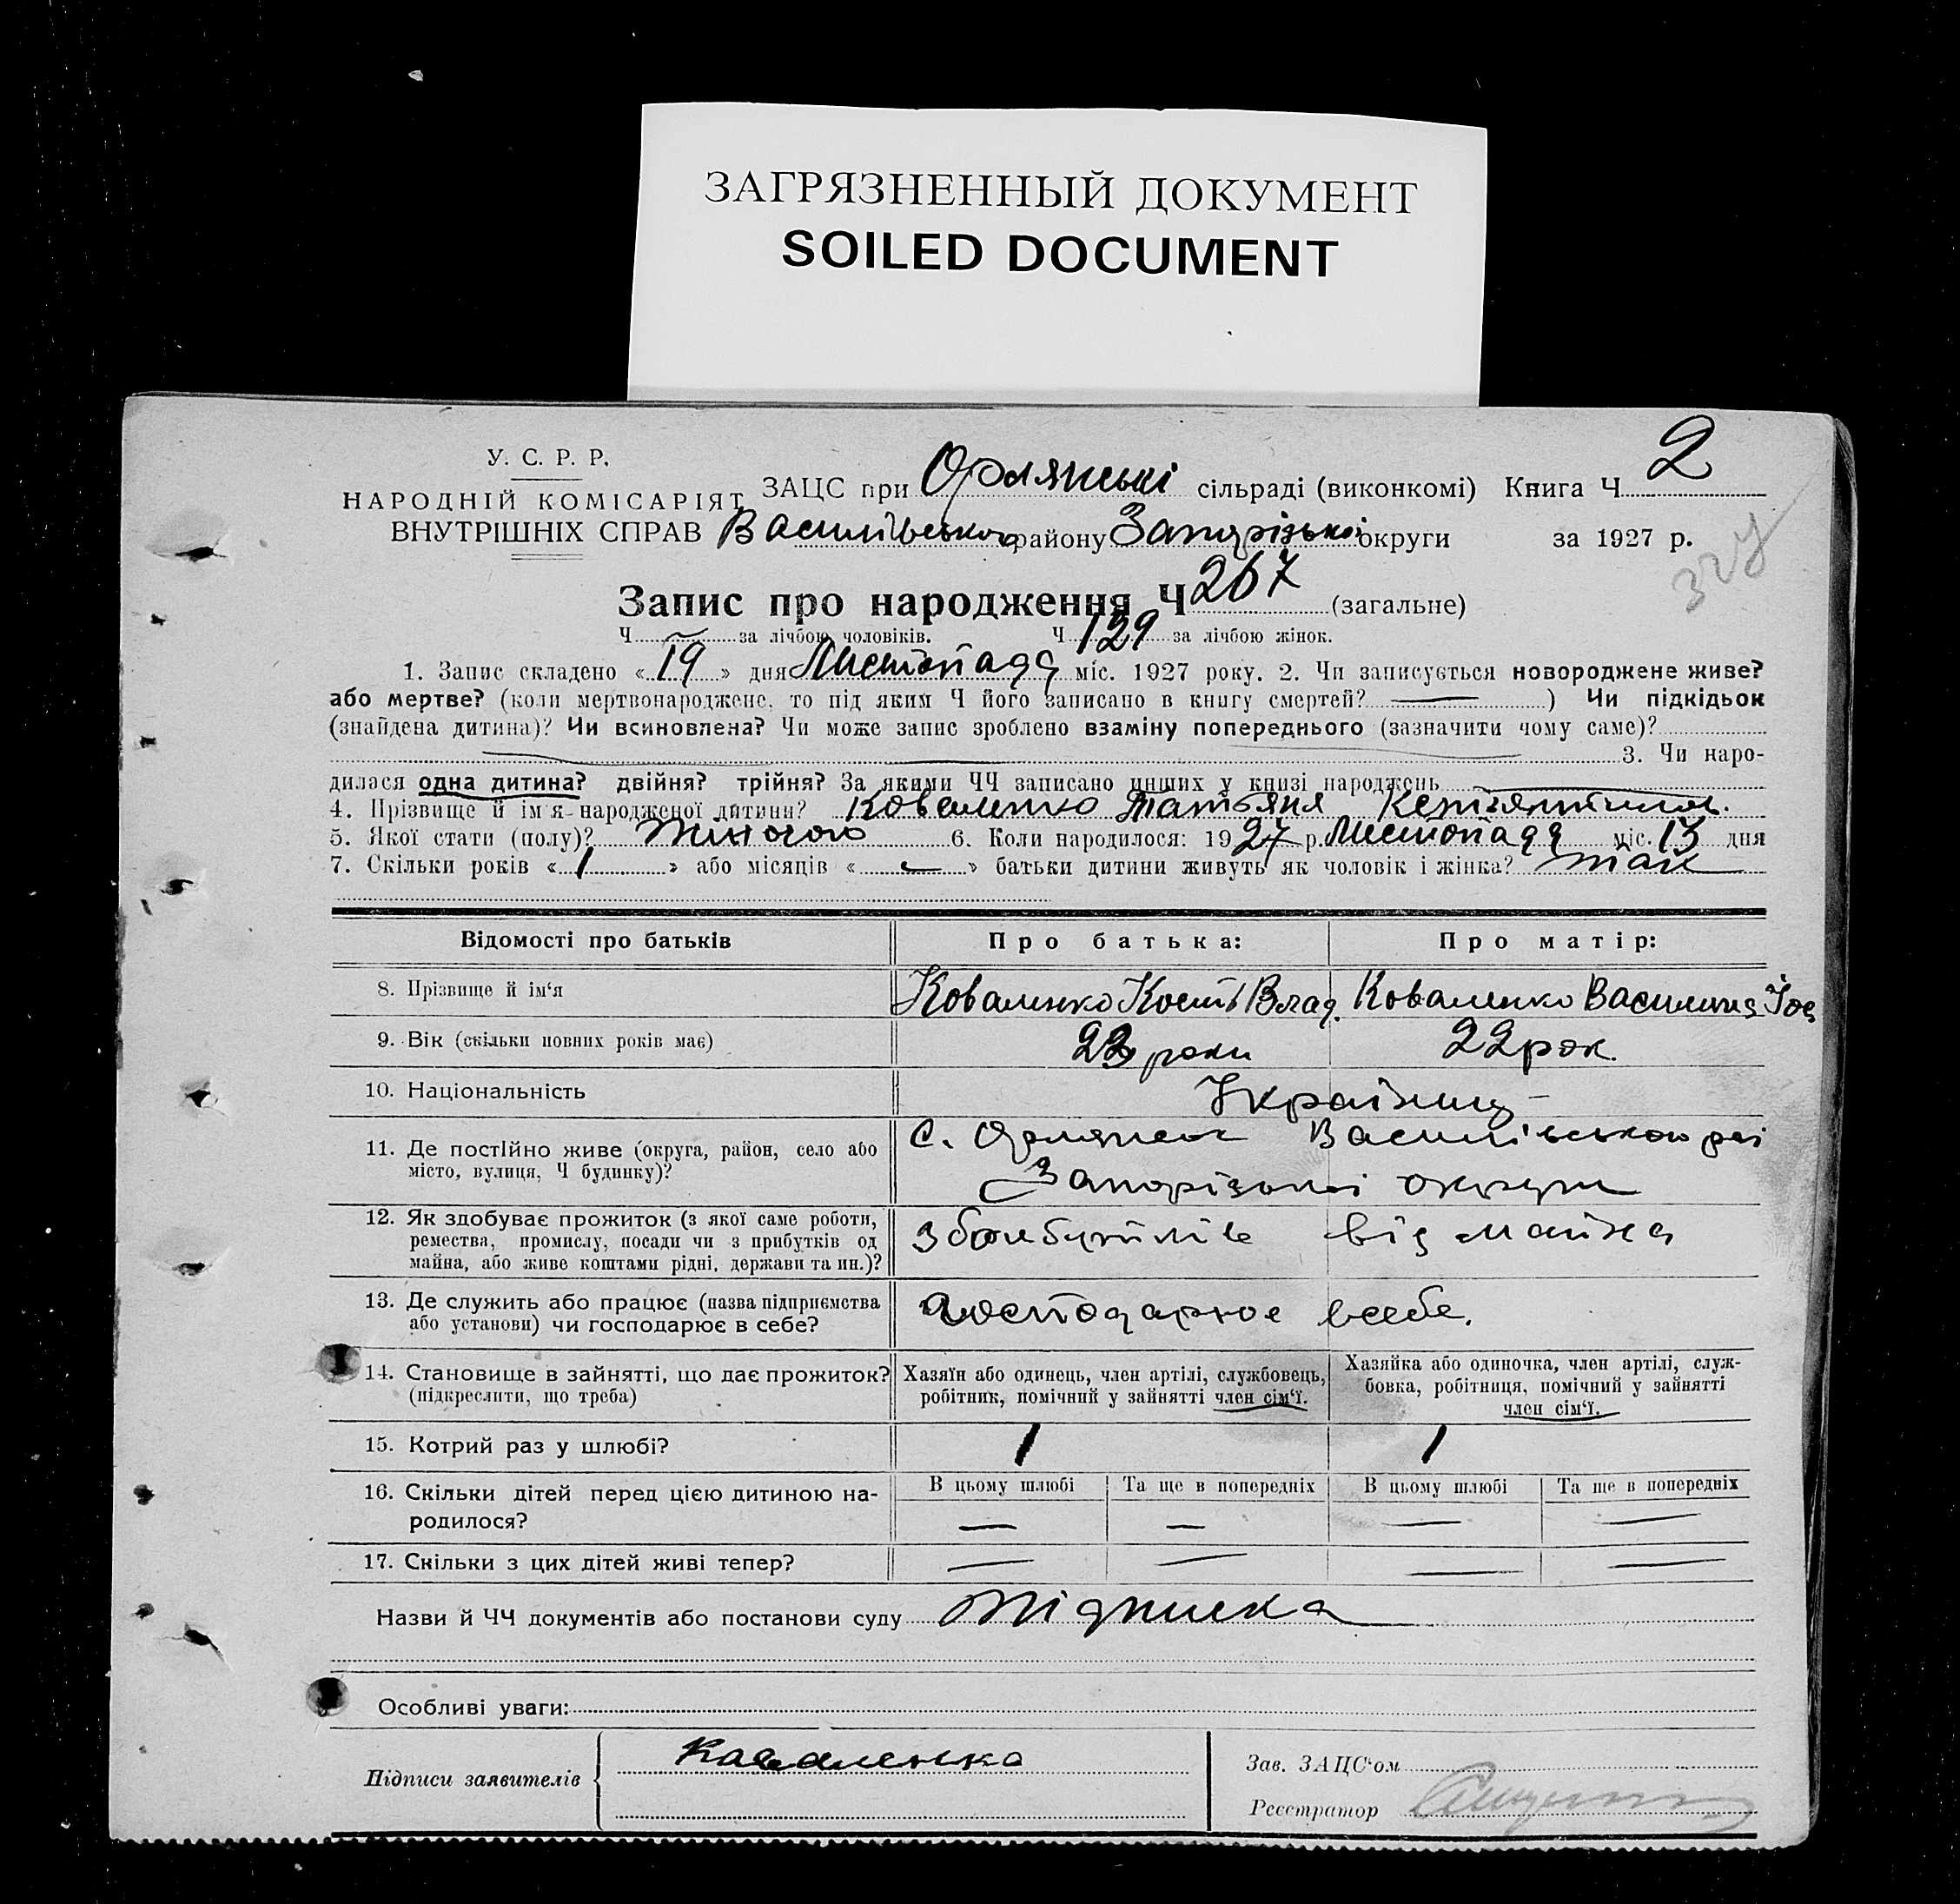 ЗАГРЯЗНЕННЫЙ ДОКУМЕНТ
SOILED DOCUMENT
У. С. Р. Р.
НАРОДНІЙ КОМІСАРІЯТ
ВНУТРІШНІХ СПРАВ
ЗАЦС при Орлянські сільраді (виконкомі) Книга Ч 2
Василівського району Запорізької округи за 1927 р.
Запис про народження Ч 267 (загальне)
Ч за лічбою чоловіків. Ч 129 за лічбою жінок.
1. Запис складено « 19 » дня Листопада міс. 1927 року. 2. Чи записується новороджене живе?
або мертве? (коли мертвонароджене, то під яким Ч його записано в книгу смертей? — ) Чи підкідьок
(знайдена дитина)? Чи всиновлена? Чи може запис зроблено взаміну попереднього (зазначити чому саме)?
3. Чи наро-
дилася одна дитина? двійня? трійня? За якими ЧЧ записано инших у книзі народжень
4. Прізвище й ім'я народженої дитини? Коваленко Татьяна
5. Якої стати (полу)? жіночою 6. Коли народилося: 1927 р. Листопада міс. 13 дня
7. Скільки років « 1 » або місяців « — » батьки дитини живуть як чоловік і жінка? так
Відомості про батьків Про батька: Про матір:
8. Прізвище й ім'я Коваленко Кость Влад. Коваленко Василина
9. Вік (скільки повних років має) 22 роки 22 рок.
10. Національність Українці
11. Де постійно живе (округа, район, село або
місто, вулиця, Ч будинку)?
с. Орлянск Василівського рай
Запорізької округи
12. Як здобуває прожиток (з якої саме роботи,
ремества, промислу, посади чи з прибутків од
майна, або живе коштами рідні, держави та ин.)?
від майна
13. Де служить або працює (назва підприємства
або установи) чи господарює в себе?
господарює всебе.
14. Становище в зайнятті, що дає прожиток?
(підкреслити, що треба)
Хазяїн або одинець, член артілі, службовець,
робітник, помічний у зайнятті член сім'ї.
Хазяйка або одиночка, член артілі, служ-
бовка, робітниця, помічний у зайнятті
член сім'ї.
15. Котрий раз у шлюбі? 1 1
16. Скільки дітей перед цією дитиною на-
родилося?
В цьому шлюбі Та ще в попередніх В цьому шлюбі Та ще в попередніх
— — — —
17. Скільки з цих дітей живі тепер? — — — —
Назви й ЧЧ документів або постанови суду підписка
Особливі уваги:
Підписи заявителів Коваленко
Зав. ЗАЦС'ом
Реєстратор